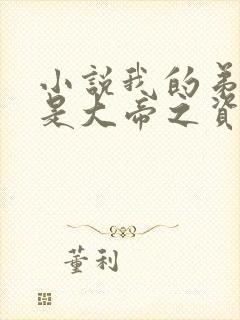 小說我的弟
是大帝之資
董利